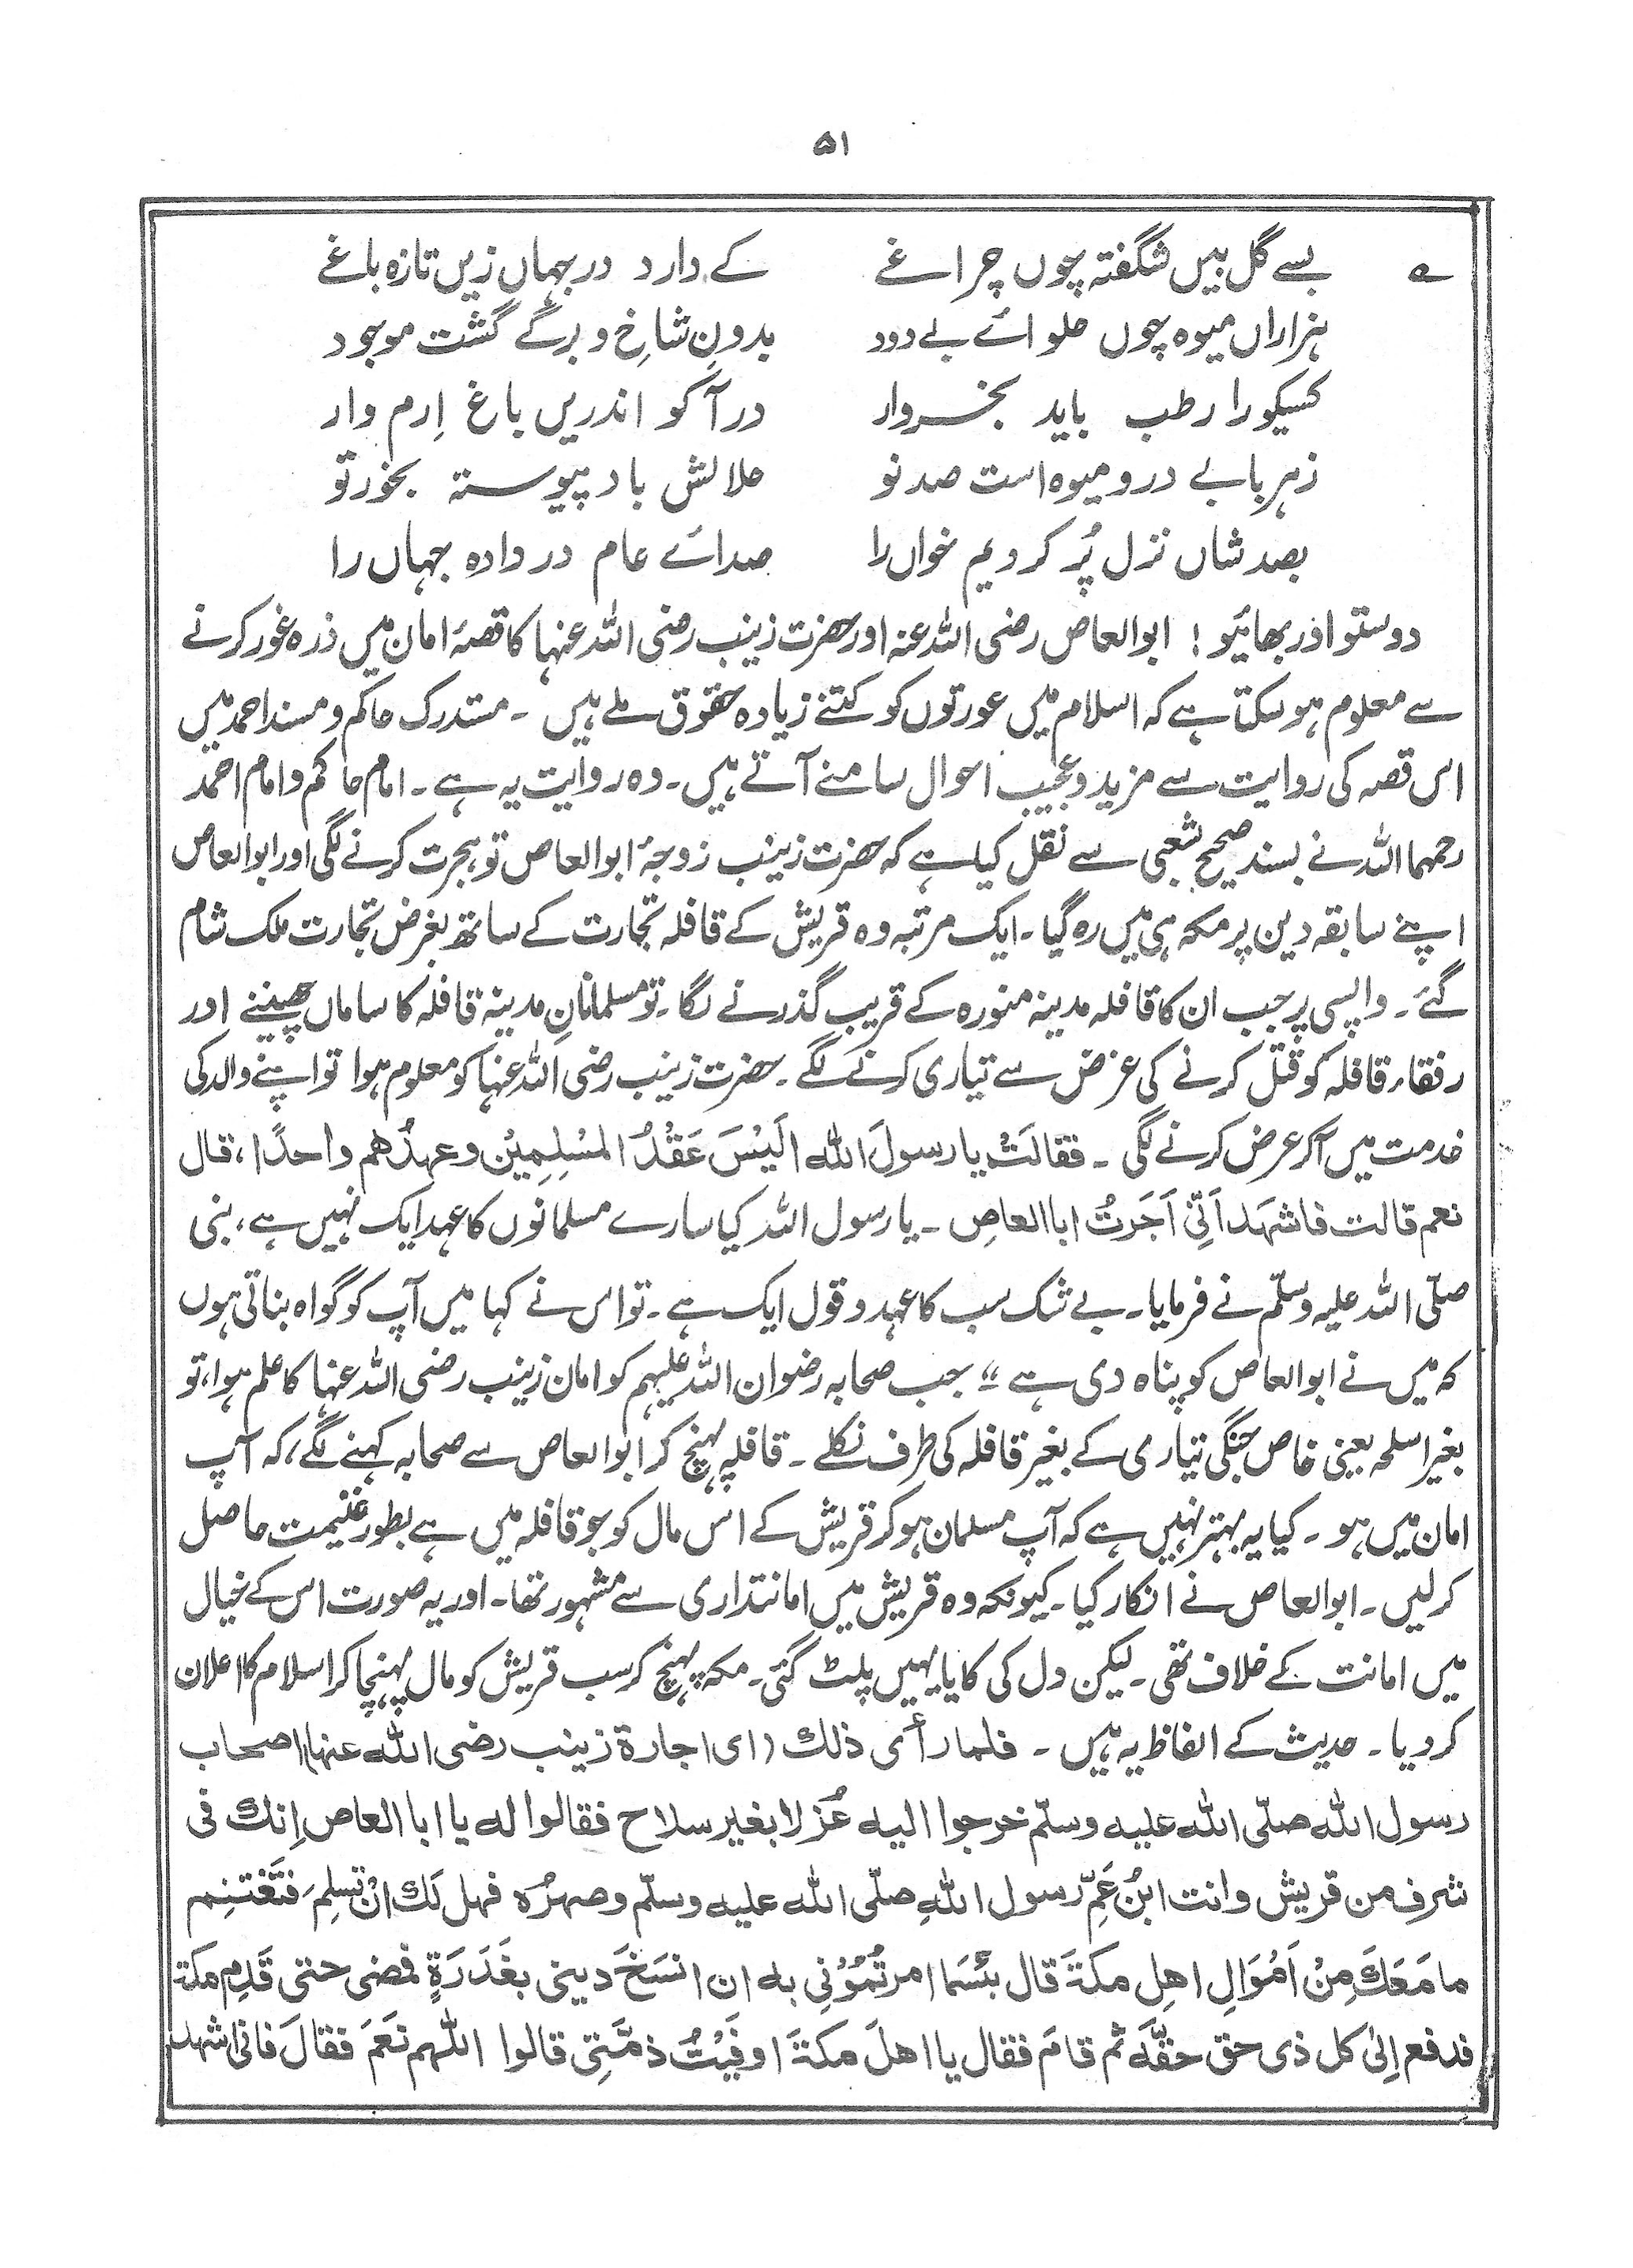 ۵۱
؎ بسے گل بیں شگفتہ چوں چراغے کے دارد در جہاں زیں تازہ باغے
ہزاراں میوہ چوں حلوائے بے دود بدونِ شاخِ و برگے گشت موجود
کسیکو را رطب باید بخروار در آ گو اندریں باغ اِرم وار
زہر بابے درو میوہ است صد نو حلالش باد پیوستہ بخور تو
بصد شاں نزل پُر کردیم خواں را صدائے عام در دادہ جہاں را
دوستو اور بھائیو! ابوالعاص رضی اللہ عنہ اور حضرت زینب رضی اللہ عنہا کا قصۂ امان میں ذرہ غور کرنے
سے معلوم ہوسکتا ہے کہ اسلام میں عورتوں کو کتنے زیادہ حقوق ملے ہیں ۔ مستدرک حاکم و مسند احمد میں
اس قصہ کی روایت سے مزید و عجیب احوال سامنے آتے ہیں۔ وہ روایت یہ ہے۔ امام حاکم و امام احمد
رحمہما اللہ نے بسند صحیح شعبی سے نقل کیا ہے کہ حضرت زینب زوجۂ ابوالعاص تو ہجرت کرنے لگی اور ابوالعاص
اپنے سابقہ دین پر مکہ ہی میں رہ گیا۔ ایک مرتبہ وہ قریش کے قافلہ تجارت کے ساتھ بغرض تجارت ملک شام
گئے۔ واپسی پر جب ان کا قافلہ مدینہ منورہ کے قریب گذرنے لگا۔ تو مسلمانانِ مدینہ قافلہ کا ساماں چھیننے اور
رفقاء قافلہ کو قتل کرنے کی غرض سے تیاری کرنے لگے۔ حضرت زینب رضی اللہ عنہا کو معلوم ہوا تو اپنے والد کی
خدمت میں آکر عرض کرنے لگی ۔ فقالَتْ یا رسولَ اللہ الَیْسَ عَقْدُ المسْلِمِیْن وعہدُھم واحدًا، قال
نعم قالت فاشہَد اَنِّی اَجَرتُ ابا العاصِ ۔ یا رسول اللہ کیا سارے مسلمانوں کا عہد ایک نہیں ہے، بنی
صلّی اللہ علیہ وسلّم نے فرمایا۔ بے شک سب کا عہد و قول ایک ہے۔ تو اس نے کہا میں آپ کو گواہ بناتی ہوں
کہ میں نے ابوالعاص کو پناہ دی ہے ؛؛ جب صحابہ رضوان اللہ علیہم کو امان زینب رضی اللہ عنہا کا علم ہوا، تو
بغیر اسلحہ یعنی خاص جنگی تیاری کے بغیر قافلہ کی طرف نکلے ۔ قافلہ پہنچ کر ابوالعاص سے صحابہ کہنے لگے، کہ آپ
امان میں ہو ۔ کیا یہ بہتر نہیں ہے کہ آپ مسلمان ہوکر قریش کے اس مال کو جو قافلہ میں ہے بطور غنیمت حاصل
کرلیں۔ ابوالعاص نے انکار کیا۔ کیونکہ وہ قریش میں امانتداری سے مشہور تھا۔ اور یہ صورت اس کے خیال
میں امانت کے خلاف تھی۔ لیکن دل کی کایا یہیں پلٹ گئی۔ مکہ پہنچ کر سب قریش کو مال پہنچا کر اسلام کا اعلان
کردیا۔ حدیث کے الفاظ یہ ہیں ۔ فلما رأی ذلك (ای اجارۃ زینب رضی اللہ عنہا) اصحاب
رسول اللہ صلّی اللہ علیہ وسلّم خرجوا الیہ عُزلا بغیر سلاح فقالوا لہ یا ابا العاص اِنك فی
شرف من قریش وانت ابنُ عَمِّ رسول اللہِ صلّی اللہ علیہ وسلّم وصہرُہ فہل لَك انْ تسلِمَ فتَغتنِم
ما مَعَكَ مِنْ اَمْوَالِ اھلِ مکةَ قال بئسَما امرتُمُوْنِی بہ ان انسَخَ دینی بغَدَرَۃٍ فمضی حتی قَدِم مکة
فدفع اِلیٰ کل ذی حق حقَّہَ ثم قامَ فقال یا اھلَ مکةَ اوفَیْتُ ذمَّتِی قالوا اللہم نَعَمَ فقالَ فانی اشہد